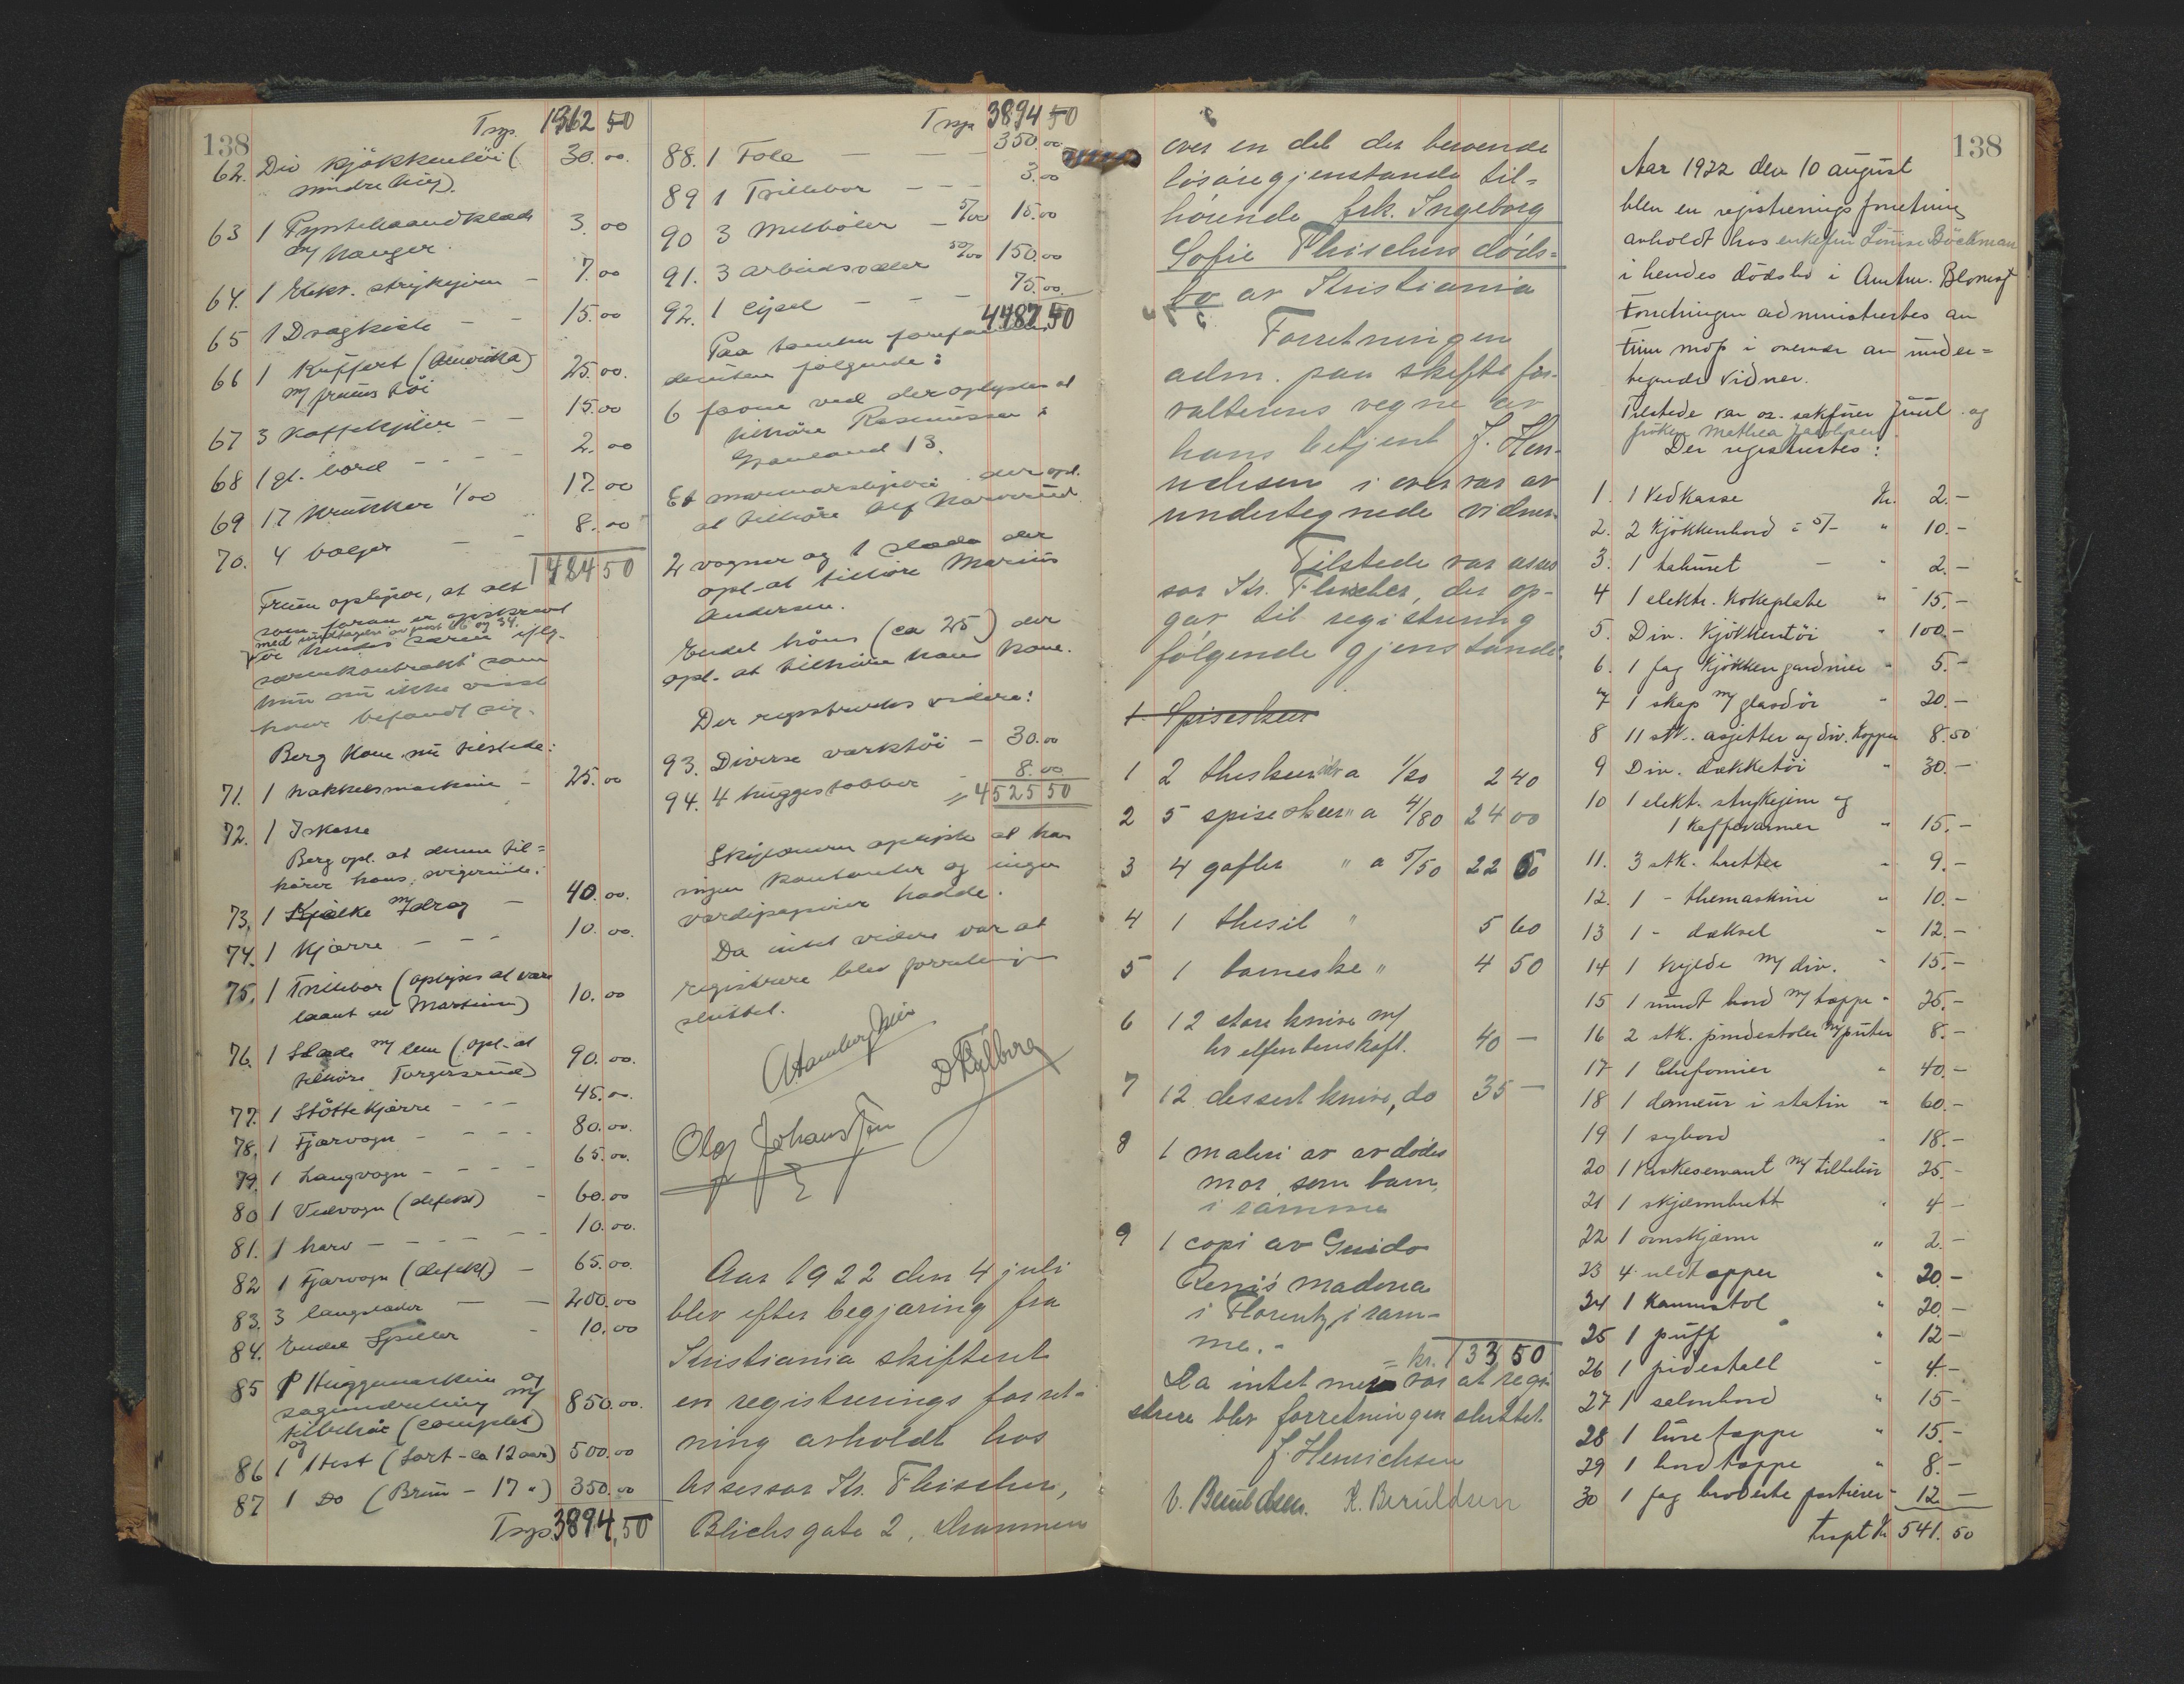 138
Trsp. 1362 50
62. Div kjøkkentøi ( 30.00.
mindre
63 1 Pyntehaandklæde 3.00
m/ hanger.
64. 1 Elektr. strykejern - 7.00
65 1 Dragkiste - - 15.00
66 1 Kuffert (Amerika) 25.00.
m/ fruens tøi
67 3 Kaffekjeler - - 15.00
68 1 gl. bord - - - - 2.00
69 17 Krukker 1/00 17.00
70. 4 boljer - - 8.00
1484 50
Fruen oplyser, at alt
som foran er opskrevet
med undtagelse av post 16 og 34.
er hendes særeie iflg.
særeiekontrakt som
hun nu ikke visst
hvor befandt sig.
Berg kom nu tilstede:
71. 1 hakkelsmaskine - 25.00
72. 1 Iskasse
Berg opl. at denne til=
hører hans svigerinde.
73. 1 Kjælke m/drag - 40.00.
74. 1 Kjærre - - - 10.00.
75. 1 Trillebør (oplyses at være
laant av Martin) 10.00
76. 1 Slæde m/ lem (opl. at 90.00.
tilhøre Torgersrud)
77. 1 Støttekjærre - - - 45.00.
78. 1 Fjærvogn - - - - 80.00.
79. 1 Langvogn - - - - 65.00.
80 1 Vedvogn (defekt) - 60.00
81. 1 harv - - - - - - 10.00.
82 1 Fjærvogn (defekt) - 65.00.
83. 3 langslæder - - 200.00
84. Endel Spiller - 10.00
85 1 Huggemaskine og
sagindretning m/ 850.00.
tilbehør (complet)
og
86 1 Hest (Sort - ca 12 aar) 500.00
87 1 Do (Brun - 17 ") 350.00
Trsp. 3894,50
Trsp. 3894 50
88. 1 Fole - - - 350.00
89 1 Trillebør - - - 3.00
90 3 Melbøler - 5/00 15.00
91. 3 arbeidssæler 50/00 150.00
92. 1 Gjed - - - 75.00.
4487 50
Paa tomten forefandtes
desuten følgende:
6 favne ved der oplystes at
tilhøre Rasmussen i
Grønland 13.
Et opl.
at tilhøre Alf
2 vogner og 1 slæde der
opl. at tilhøre Marius
Andersen.
Endel høns (ca 25) der
opl. at tilhøre hans kone.
Der registrertes videre:
93. Diverse værktøi - 30.00
94. 4 huggestabber - 8.00
= 4525 50
Skyldneren oplyste at han
ingen kontanter og ingen
værdipapirer hadde.
Da intet videre var at
registrere blev forretningen
sluttet.
Olaf Johansen
Aar 1922 den 4 juli
blev efter begjæring fra
Kristiania skifteret
en registrerings forret-
ning avholdt hos
Assessor Kr. Fleischer,
Blichsgate 2, Drammen
over en del der beroende
løsøregjenstande til=
hørende frk. Ingeborg
Sofie Fleischers døds=
bo av Kristiania
Forretningen
adm. paa skiftefor-
valterens vegne av
hans betjent J. Hen-
richsen i overvær av
undertegnede vidner.
Tilstede var asses
sor Kr. Fleischer, der op-
gav til registrering
følgende gjenstande:
1. Spiseskeer
1 2 theskeer sølv a 1/20 2 40
2 5 spiseskeer " a 4/80 24 00
3 4 gafler " a 5/50 22 00
4 1 thesil " 5 60
5 1 barneske " 4 50
6 12 store knive m/
elfenbenskaft. 40 -
7 12 dessert knive, do 35 -
8 1 maleri av avdødes
mor som barn,
i ramme
9 1 copi av Guido
Reni's madona
i Florentz, i ram-
me. -
= kr. 133 50
Da intet mere var at regi
strere blev forretningen sluttet.
J. Henrichsen
V. Beruldsen. K. Beruldsen
138
Aar 1922 den 10 august
blev en registreringsforretning
avholdt hos enkefru Louise Böckman
i hendes dødsbo i Amtm. Blomsg
Forretningen administrertes av
fuldm i overvær av under=
tegnede vidner.
Tilstede var os. sakfører Juul og
frøken Mathea Jacobsen.
Der registrertes:
1. 1 Vedkasse Kr. 2.-
2. 2 Kjøkkenbord = 5/- " 10.-
3. 1 taburet - " 2.-
4 1 elektr. kokeplate " 15.-
5. Div. Kjøkkentøi " 100.-
6. 1 fag Kjøkkengardiner " 5.-
7 1 skap m/ glasdør " 20.-
8 11 stk. asjetter og div. kopper 8.50
9 Div. dekketøi " 30.-
10 1 elekt. strykejern og
1 kaffevarmer " 15.-
11. 3 stk. bretter " 9.-
12. 1 - themaskine " 10.-
13 1 - deksel " 12.-
14 1 hylde m/ div. " 15.-
15 1 rundt bord m/ teppe " 25.-
16 2 stk. pindestoler m/puter 8.-
17 1 Chefonier " 40.-
18 1 armeur i statin " 60.-
19 1 sybord " 18.-
20 1 Vaskeservant m/ tilbehør 25.-
21 1 skjermbrett " 4 -
22 1 ovnskjerm " 2.-
23 4 uldtepper " 20.-
24 1 Kurvstol " 20.-
25 1 puff " 12 -
26 1 pidestall " 4.-
27 1 salonbord " 15 -
28 1 luretæppe " 15.-
29 1 bordtæppe " 8.-
30 1 fag broderte portierer " 12 -
trspt Kr 541.50